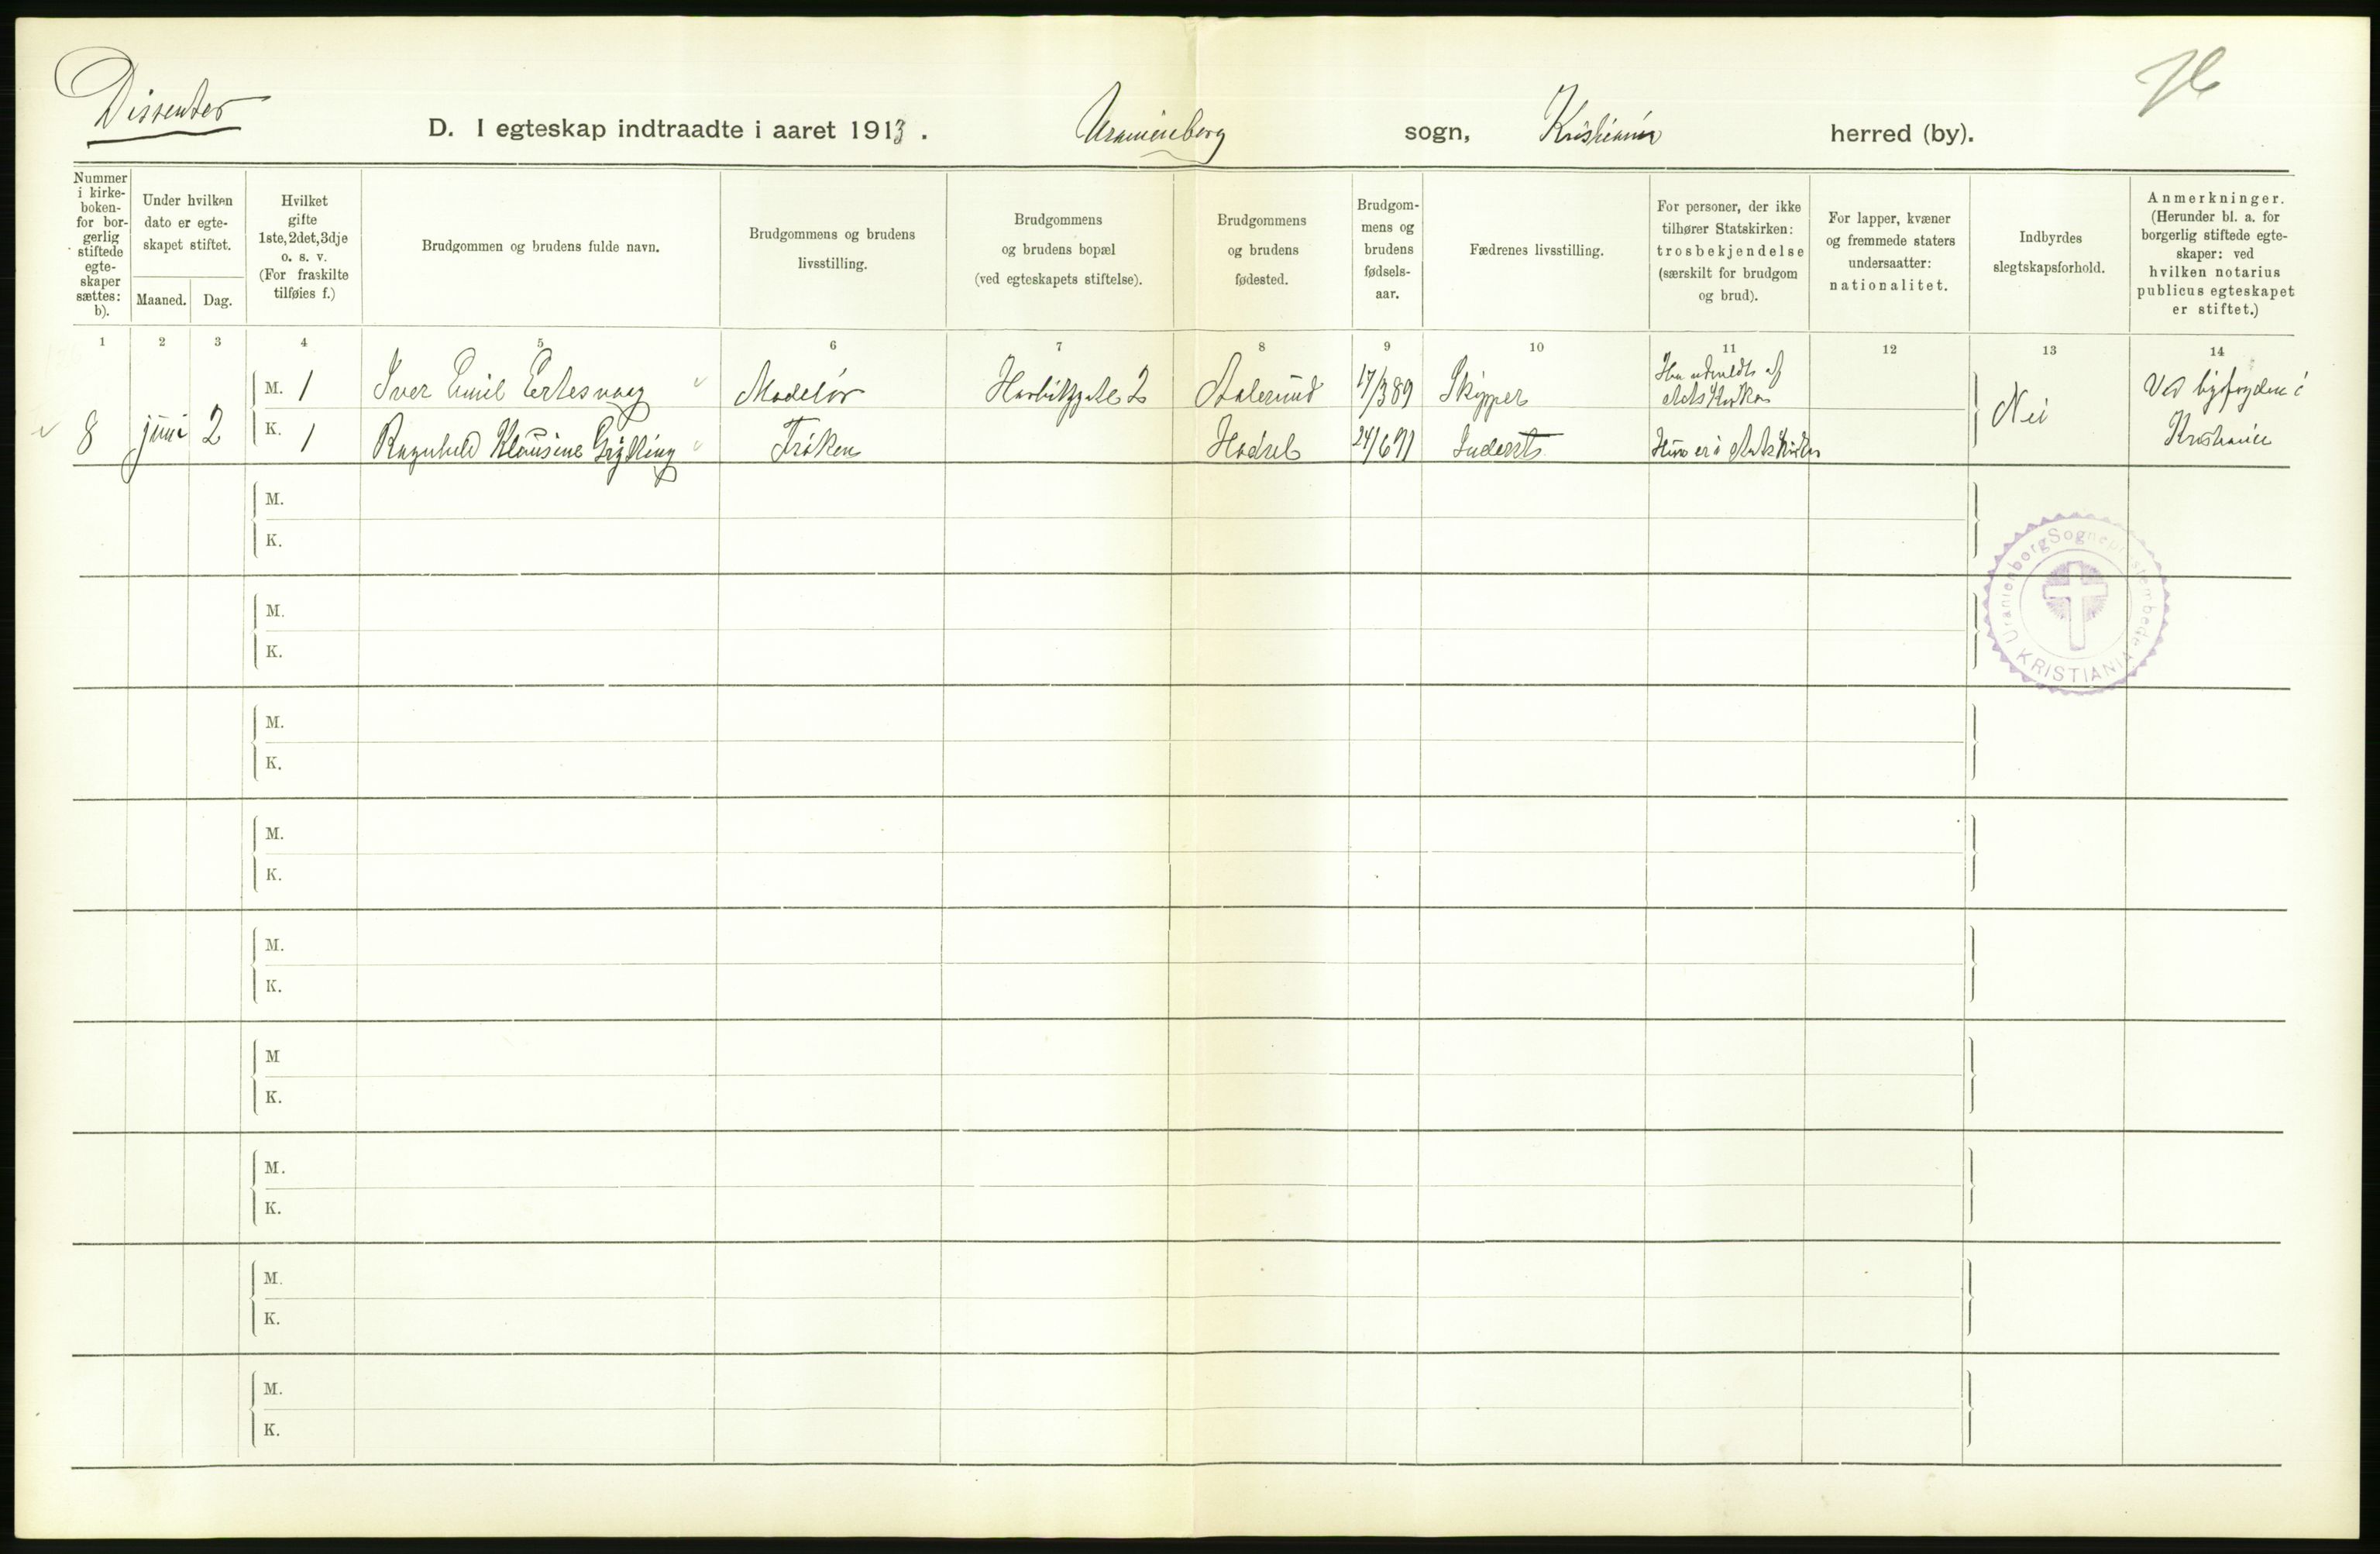 Dissenter
D. I egteskap indtraadte i aaret 1913. Uranienborg sogn, Kristiania herred (by).
Nummer i kirke-boken- for bor-gerlig stiftede egte-skaper sættes: b).
Under hvilken dato er egte-skapet stiftet.
Maaned. Dag.
Hvilket gifte 1ste, 2det, 3dje o. s. v. (For fraskilte tilføies f.)
Brudgommen og brudens fulde navn.
Brudgommens og brudens livsstilling.
Brudgommens og brudens bopæl (ved egteskapets stiftelse).
Brudgommens og brudens fødested.
Brudgom-mens og brudens fødsels-aar.
Fædrenes livsstilling.
For personer, der ikke tilhører Statskirken: trosbekjendelse (særskilt for brudgom og brud).
For lapper, kvæner og fremmede staters undersaatter: nationalitet.
Indbyrdes slegtskapsforhold.
Anmerkninger. (Herunder bl. a. for borgerlig stiftede egte-skaper: ved hvilken notarius publicus egteskapet er stiftet.)
1 2 3 4 5 6 7 8 9 10 11 12 13 14
8 juni 2
M. 1 Iver Emil Ertesvaag Modelør 2 Aalesund 17/3 89 Skipper Han udmeldt af Statskirken
K. 1 Ragnhild Klausine Gjylling Frøken Hadsel 24/6 91 Hun er i Statskirken
Nei
Ved byfogden i Kristiania
M.
K.
M.
K.
M.
K.
M.
K.
M.
K.
M
K.
M.
K.
M.
K.
M.
K.
Uranienborg Sogneprestembede
KRISTIANIA